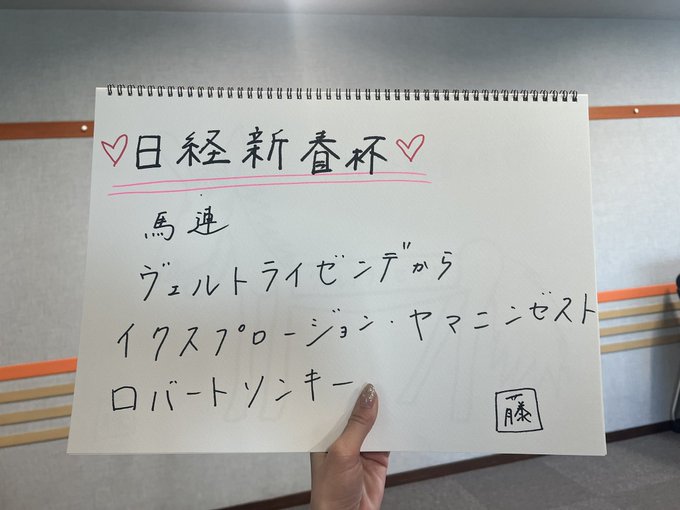 ♡日経新春杯♡
馬連
ヴェルトライゼンデから
イクスプロージョン・ヤマニンゼスト
ロバートソンキー
藤